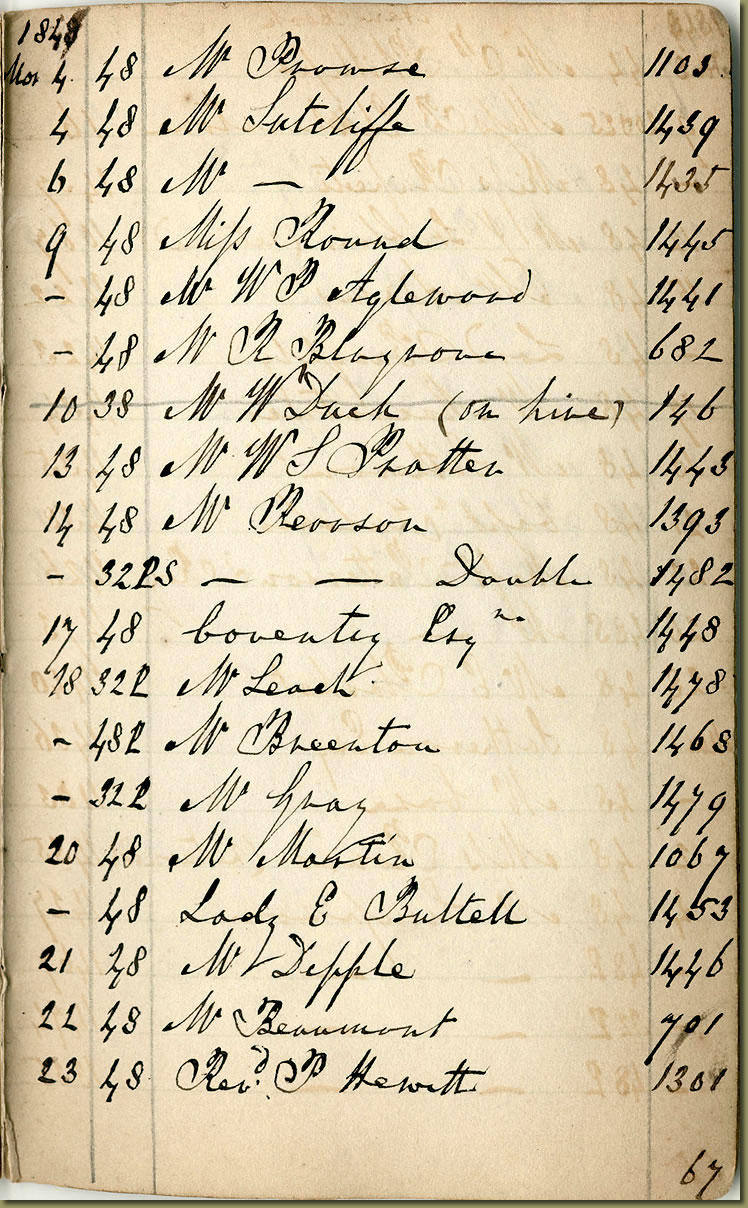 1848
Mar 4 48 Mr Prowse 1103
4 48 Mr Sutcliffe 1439
6 48 Mr — 1435
9 48 Miss Round 1445
– 48 Mr W P Aglewood 1441
– 48 Mr R Blagrove 682
10 38 Mr W Duck (on hire) 146
13 48 Mr W S Pratten 1443
14 48 Mr 1393
– 32PS — — Double 1482
17 48 Coventry Esqre 1448
18 32P Mr Leach 1478
– 48P Mr Breenton 1468
– 32P Mr Gray 1479
20 48 Mr Martin 1067
– 48 Lady E Bultell 1453
21 48 Mr Dipple 1446
22 48 Mr Beaumont 701
23 48 Revd. P Hewitt 1301
67